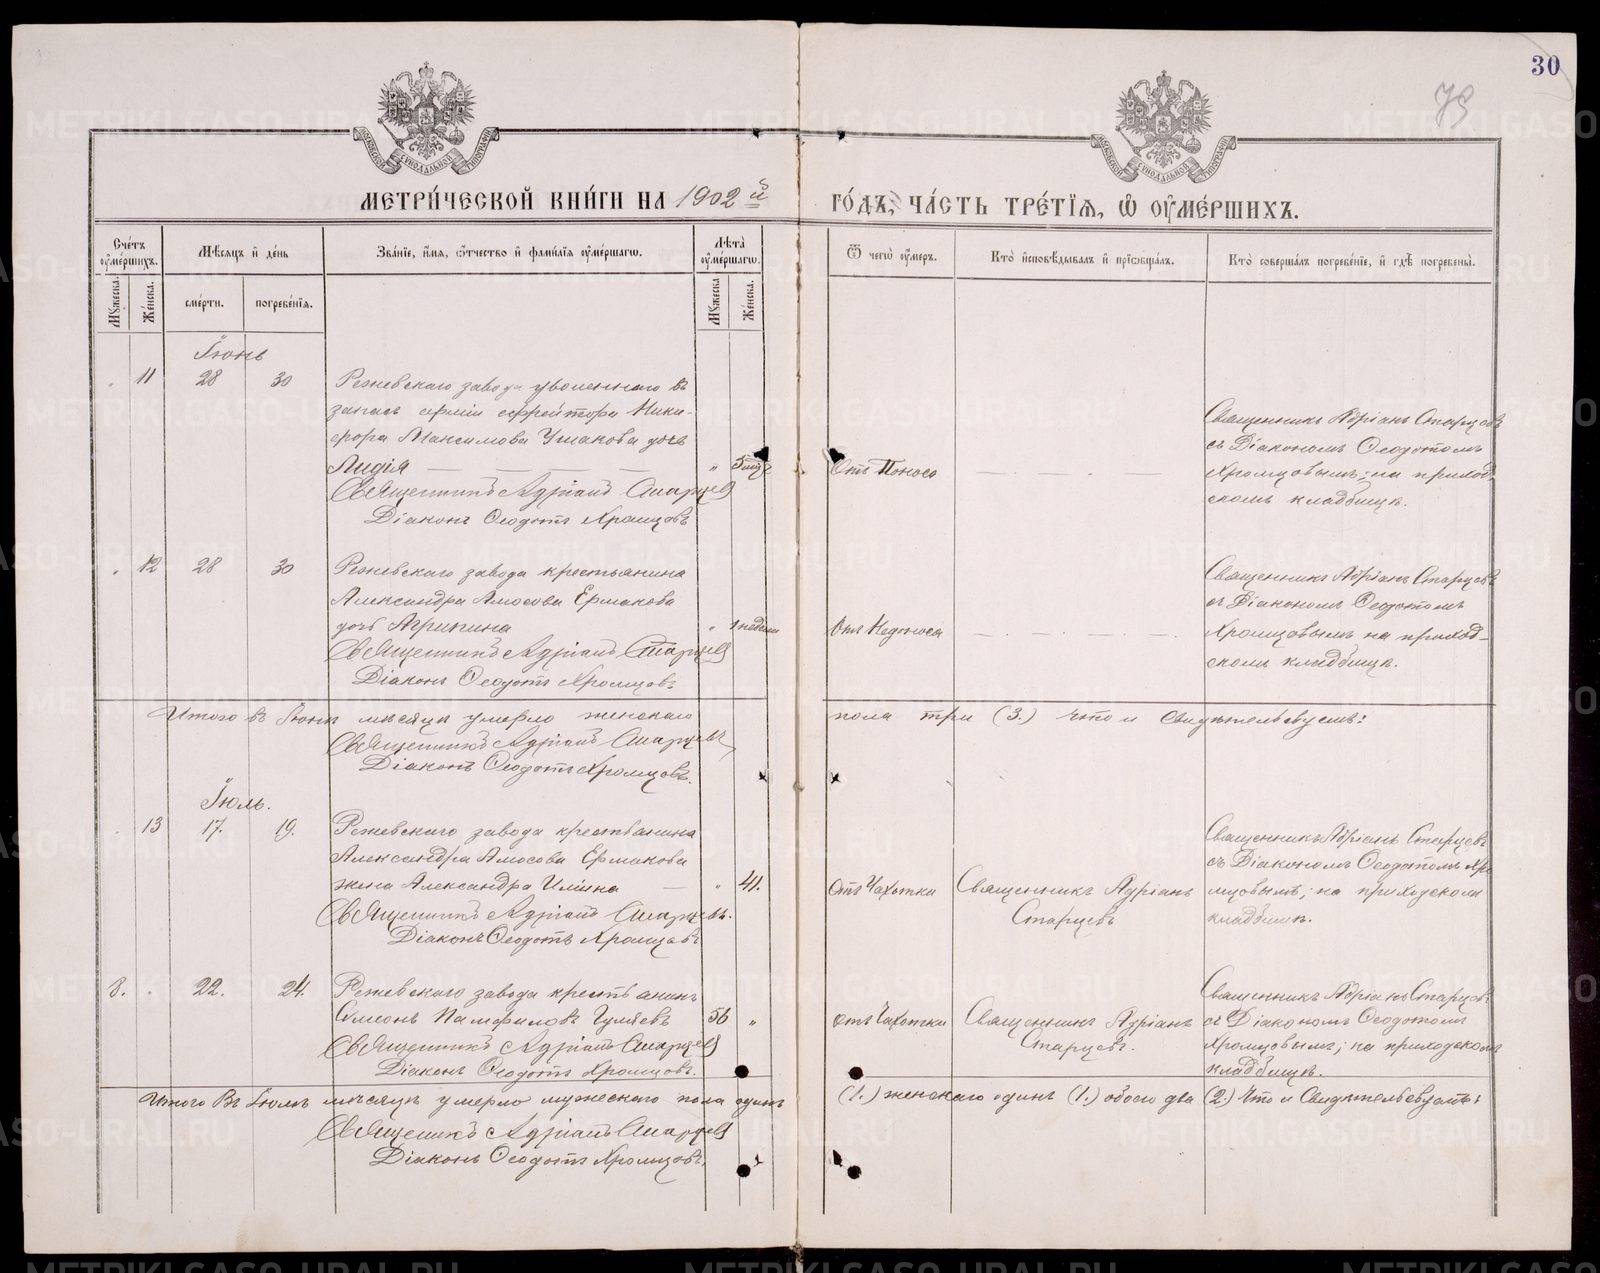 30
МЕТРИ́ЧЕСКОЙ КНИ́ГИ НА 1902 й
ГО́ДЪ, ЧА́СТЬ ТРЕ́ТIЯ, Ѿ ОУ҆МЕ́РШИХЪ.
Сче́тъ оу҆ме́ршихъ.
Мѣ́сяцъ и҆ де́нь
Зва́нїе, и҆́мя, ѻ҆́тчество и҆ фами́лїя оу҆ме́ршагѡ.
Лѣта̀ оу҆ме́ршагѡ.
Ѿ чегѡ̀ оу҆́меръ.
Кто̀ и҆сповѣ́дывалъ и҆ прїѡбща́лъ.
Кто̀ соверша́лъ погребе́нїе, и҆ гдѣ̀ погребены̀.
Мꙋ́жеска.
Же́нска.
сме́рти.
погребе́нїя.
Мꙋ́жеска
Же́нска.
Іюнь
11 28 30 Режевскаго завода уволеннаго въ
запасъ арміи ефрейтора Ники-
фора Максимова Ушакова дочь
Лидія — — — „
Священникъ Адріанъ Старцевъ
Діаконъ Ѳеодотъ Хромцовъ
Отъ Поноса
Священникъ Адріанъ Старцевъ
съ Діакономъ Ѳеодотомъ
Хромцовымъ; на приход-
скомъ кладбищѣ.
12 28 30 Режевскаго завода крестьянина
Александра Амосова Ермакова
дочь Агрипина „ 1 недели
Священникъ Адріанъ Старцевъ
Діаконъ Ѳеодотъ Хромцовъ
Отъ Недоноса
Священникъ Адріанъ Старцевъ
съ Діакономъ Ѳеодотомъ
Хромцовымъ на приход-
скомъ кладбищѣ.
Итого въ Іюнѣ мѣсяцѣ умерло женскаго пола три (3.) Что и свидѣтельствуемъ:
Священникъ Адріанъ Старцевъ
Діаконъ Ѳеодотъ Хромцовъ.
Іюль.
13 17. 19. Режевскаго завода крестьянина
Александра Амосова Ермакова
жена Александра Ильина — „ 41.
Священникъ Адріанъ Старцевъ.
Діаконъ Ѳеодотъ Хромцовъ
Отъ Чахотки
Священникъ Адріанъ
Старцевъ
Священникъ Адріанъ Старцевъ
съ Діакономъ Ѳеодотомъ Хро
мцовымъ; на приходскомъ
кладбищѣ.
8. 22. 24. Режевскаго завода крестьянинъ
Симеонъ Памфиловъ 56 „
Священникъ Адріанъ Старцевъ
Діаконъ Ѳеодотъ Хромцовъ.
отъ Чахотки
Священникъ Адріанъ
Старцевъ.
Священникъ Адріанъ Старцевъ
съ Діакономъ Ѳеодотомъ
Хромцовымъ; на приходскомъ
кладбищѣ.
Итого Въ Іюлѣ мѣсяцѣ умерло мужескаго пола одинъ (1.) женскаго одинъ (1.) обоего два (2.) Что и Свидѣтельствуемъ:
Священникъ Адріанъ Старцевъ
Діаконъ Ѳеодотъ Хромцовъ.
METRIKI.GASO-URAL.RU